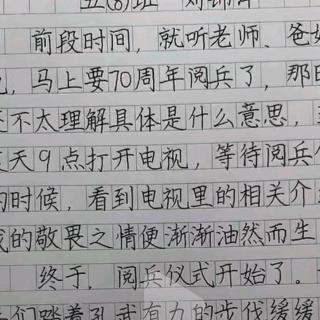 五(8)班 刘锦
前段时间，就听老师、爸
，马上要70周年阅兵了，那
不太理解具体是什么意思，
天9点打开电视，等待阅兵
的时候，看到电视里的相关介
我的敬畏之情便渐渐油然而生
终于，阅兵仪式开始了。
们踏着孔武有力的步伐缓缓